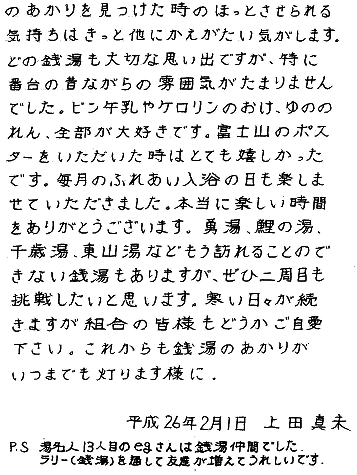 のあかりを見つけた時のほっとさせられる
気持ちはきっと他にかえがたい気がします。
どの銭湯も大切な思い出ですが、特に
番台の昔ながらの雰囲気がたまりません
でした。ビン牛乳やケロリンのおけ、ゆのの
れん、全部が大好きです。富士山のポス
ターをいただいた時はとても嬉しかった
です。毎月のふれあい入浴の日も楽しま
せていただきました。本当に楽しい時間
をありがとうございます。勇湯、鯉の湯、
千歳湯、東山湯などもう訪れることので
きない銭湯もありますが、ぜひ二周目も
挑戦したいと思います。寒い日々が続
きますが組合の皆様もどうかご自愛
下さい。これからも銭湯のあかりが
いつまでも灯ります様に.
平成26年2月1日 上田真未
P.S 湯名人13人目のegさんは銭湯仲間でした.
ラリー(銭湯)を通して友達が増えてうれしいです.